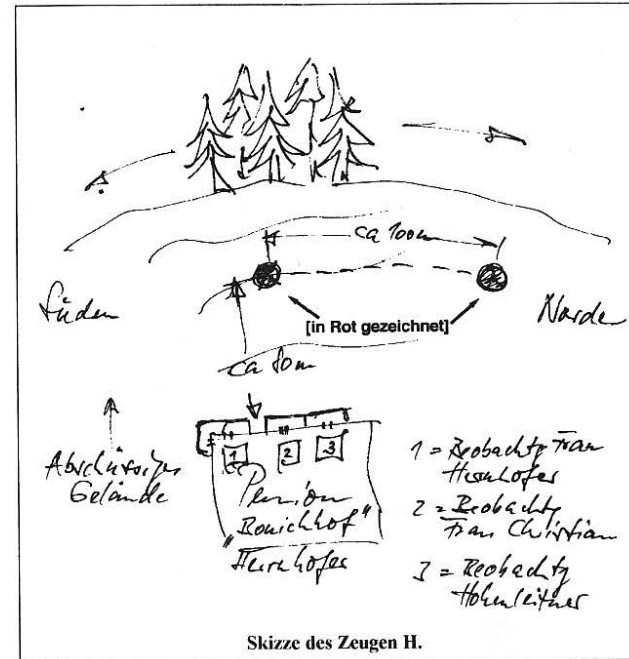 ca 100m
Süden
[in Rot gezeichnet]
Norden
ca 80m
Abschüssiges
Gelände
1 2 3
Pension
"Bonichhof"
Herrnhofer
1 = Beobachtg Frau
Herrnhofer
2 = Beobachtg
Frau Christian
3 = Beobachtg
Hohenleitner
Skizze des Zeugen H.